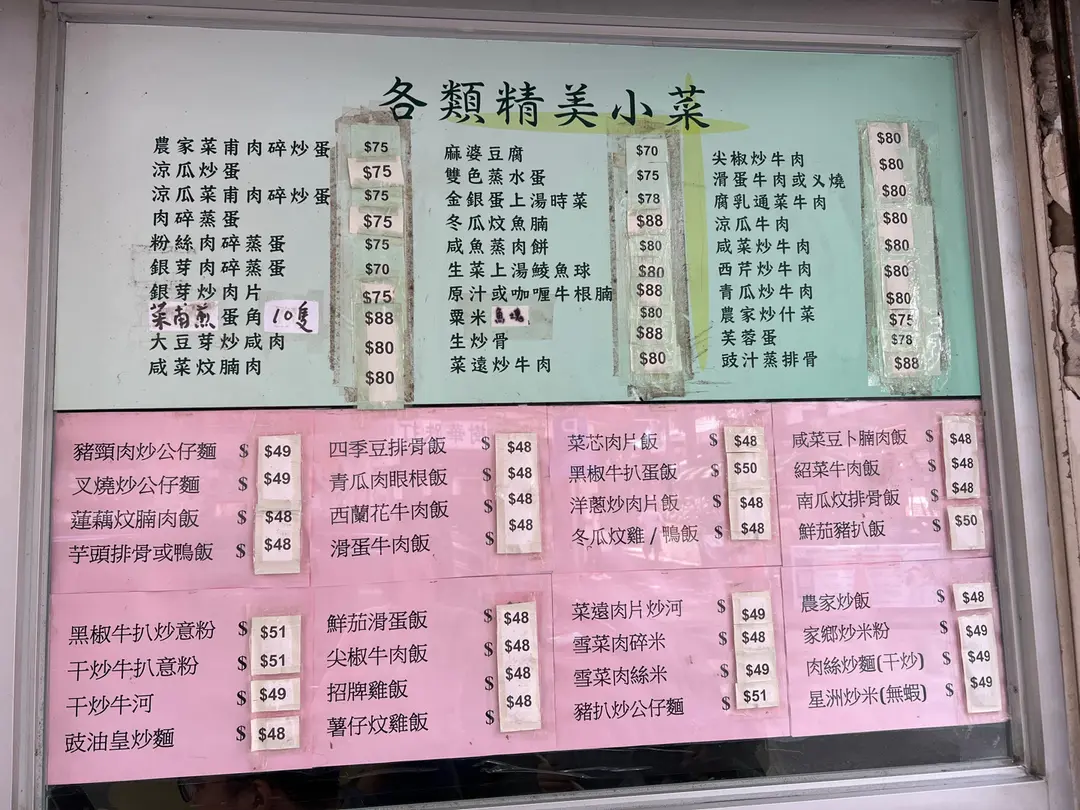 各類精美小菜
農家菜甫肉碎炒蛋 $75
涼瓜炒蛋 $75
涼瓜菜甫肉碎炒蛋 $75
肉碎蒸蛋 $75
粉絲肉碎蒸蛋 $75
銀芽肉碎蒸蛋 $70
銀芽炒肉片 $75
菜甫煎蛋角 10隻 $88
大豆芽炒咸肉 $80
咸菜炆腩肉 $80
麻婆豆腐 $70
雙色蒸水蛋 $75
金銀蛋上湯時菜 $78
冬瓜炆魚腩 $88
咸魚蒸肉餅 $80
生菜上湯鯪魚球 $80
原汁或咖喱牛根腩 $88
粟米 $80
生炒骨 $88
菜遠炒牛肉 $80
尖椒炒牛肉 $80
滑蛋牛肉或乂燒 $80
腐乳通菜牛肉 $80
涼瓜牛肉 $80
咸菜炒牛肉 $80
西芹炒牛肉 $80
青瓜炒牛肉 $80
農家炒什菜 $75
芙蓉蛋 $78
豉汁蒸排骨 $88
豬頸肉炒公仔麵 $ $49
叉燒炒公仔麵 $ $49
蓮藕炆腩肉飯 $ $48
芋頭排骨或鴨飯 $ $48
四季豆排骨飯 $ $48
青瓜肉眼根飯 $ $48
西蘭花牛肉飯 $ $48
滑蛋牛肉飯 $ $48
菜芯肉片飯 $ $48
黑椒牛扒蛋飯 $ $50
洋蔥炒肉片飯 $ $48
冬瓜炆雞/鴨飯 $ $48
咸菜豆卜腩肉飯 $ $48
紹菜牛肉飯 $ $48
南瓜炆排骨飯 $ $48
鮮茄豬扒飯 $ $50
黑椒牛扒炒意粉 $ $51
干炒牛扒意粉 $ $51
干炒牛河 $ $49
豉油皇炒麵 $ $48
鮮茄滑蛋飯 $ $48
尖椒牛肉飯 $ $48
招牌雞飯 $ $48
薯仔炆雞飯 $ $48
菜遠肉片炒河 $ $49
雪菜肉碎米 $ $48
雪菜肉絲米 $ $49
豬扒炒公仔麵 $ $51
農家炒飯 $ $48
家鄉炒米粉 $ $49
肉絲炒麵(干炒) $ $49
星洲炒米(無蝦) $ $49